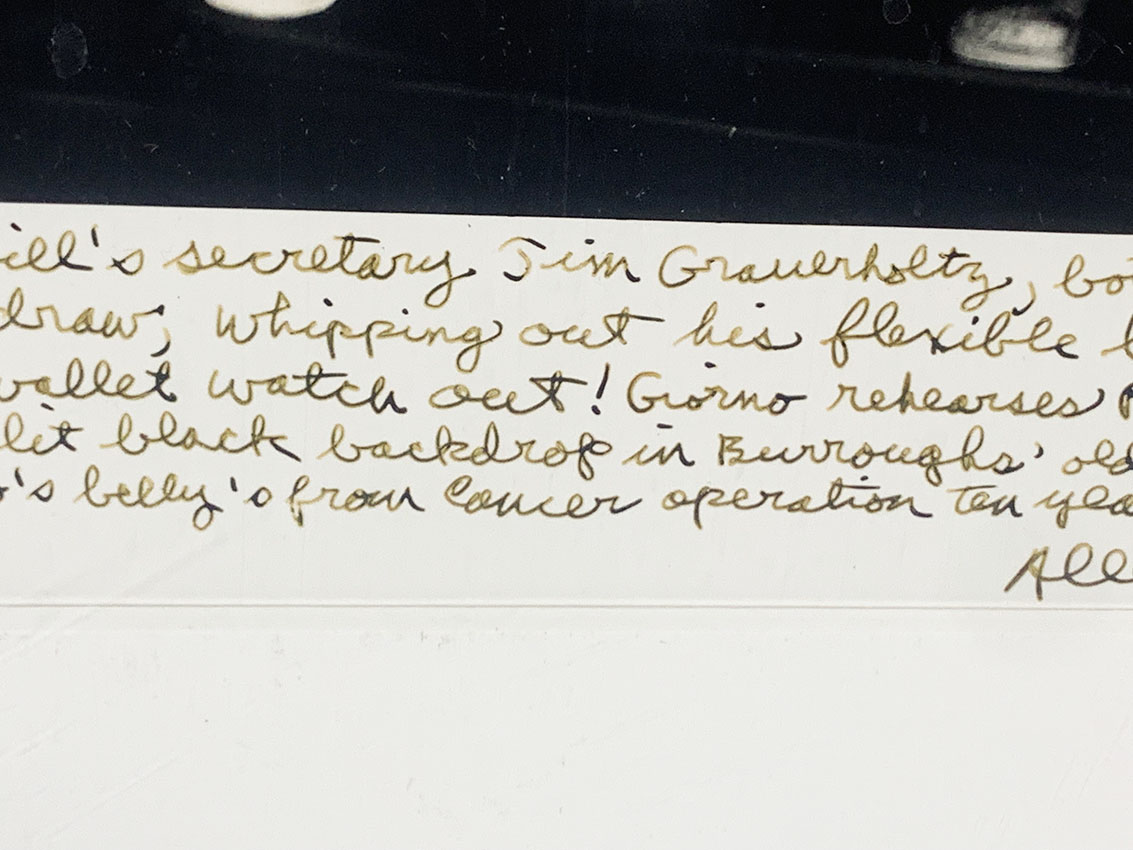 ill's secretary Jim Grauerholtz, bo
draw, whipping out his flexible
wallet watch out! Giorno rehearses
lit black backdrop in Burroughs' old
's belly's from Cancer operation ten yea
All